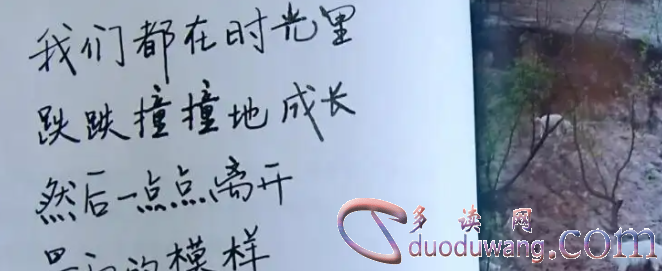 我们都在时光里
跌跌撞撞地成长
然后一点点离开
的模样
多读网
duoduwang.com